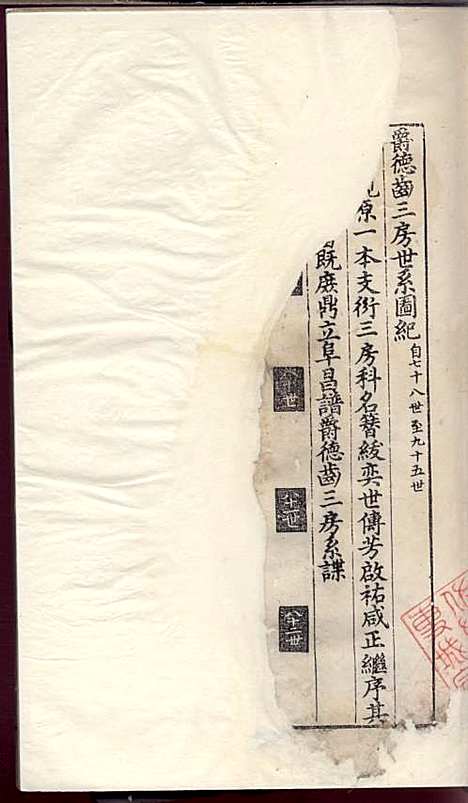 爵德齒三房世系圖紀 自七十八世至九十五世
原一本支衍三房科名簪紱奕世傳芳啟祐咸正繼序其
既庶鼎立阜昌譜爵德齒三房系諜
十世
八十一世
八十二世